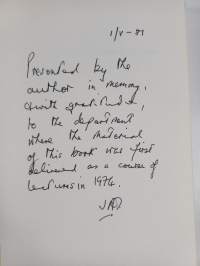 1/V-81
Presented by the
author in memory,
& with gratitude,
to the department
where the material
of this book was first
delivered as a course of
lectures in 1974.